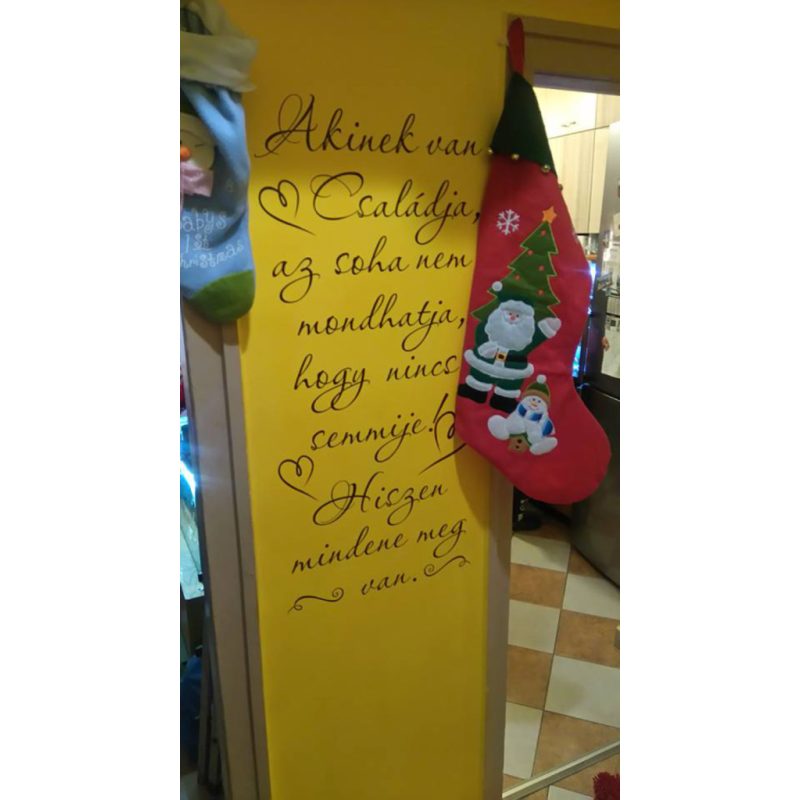 Akinek van
Családja,
az soha nem
mondhatja,
hogy nincs
semmije!
Hiszen
mindene meg
van.
Babys
1st
Christmas